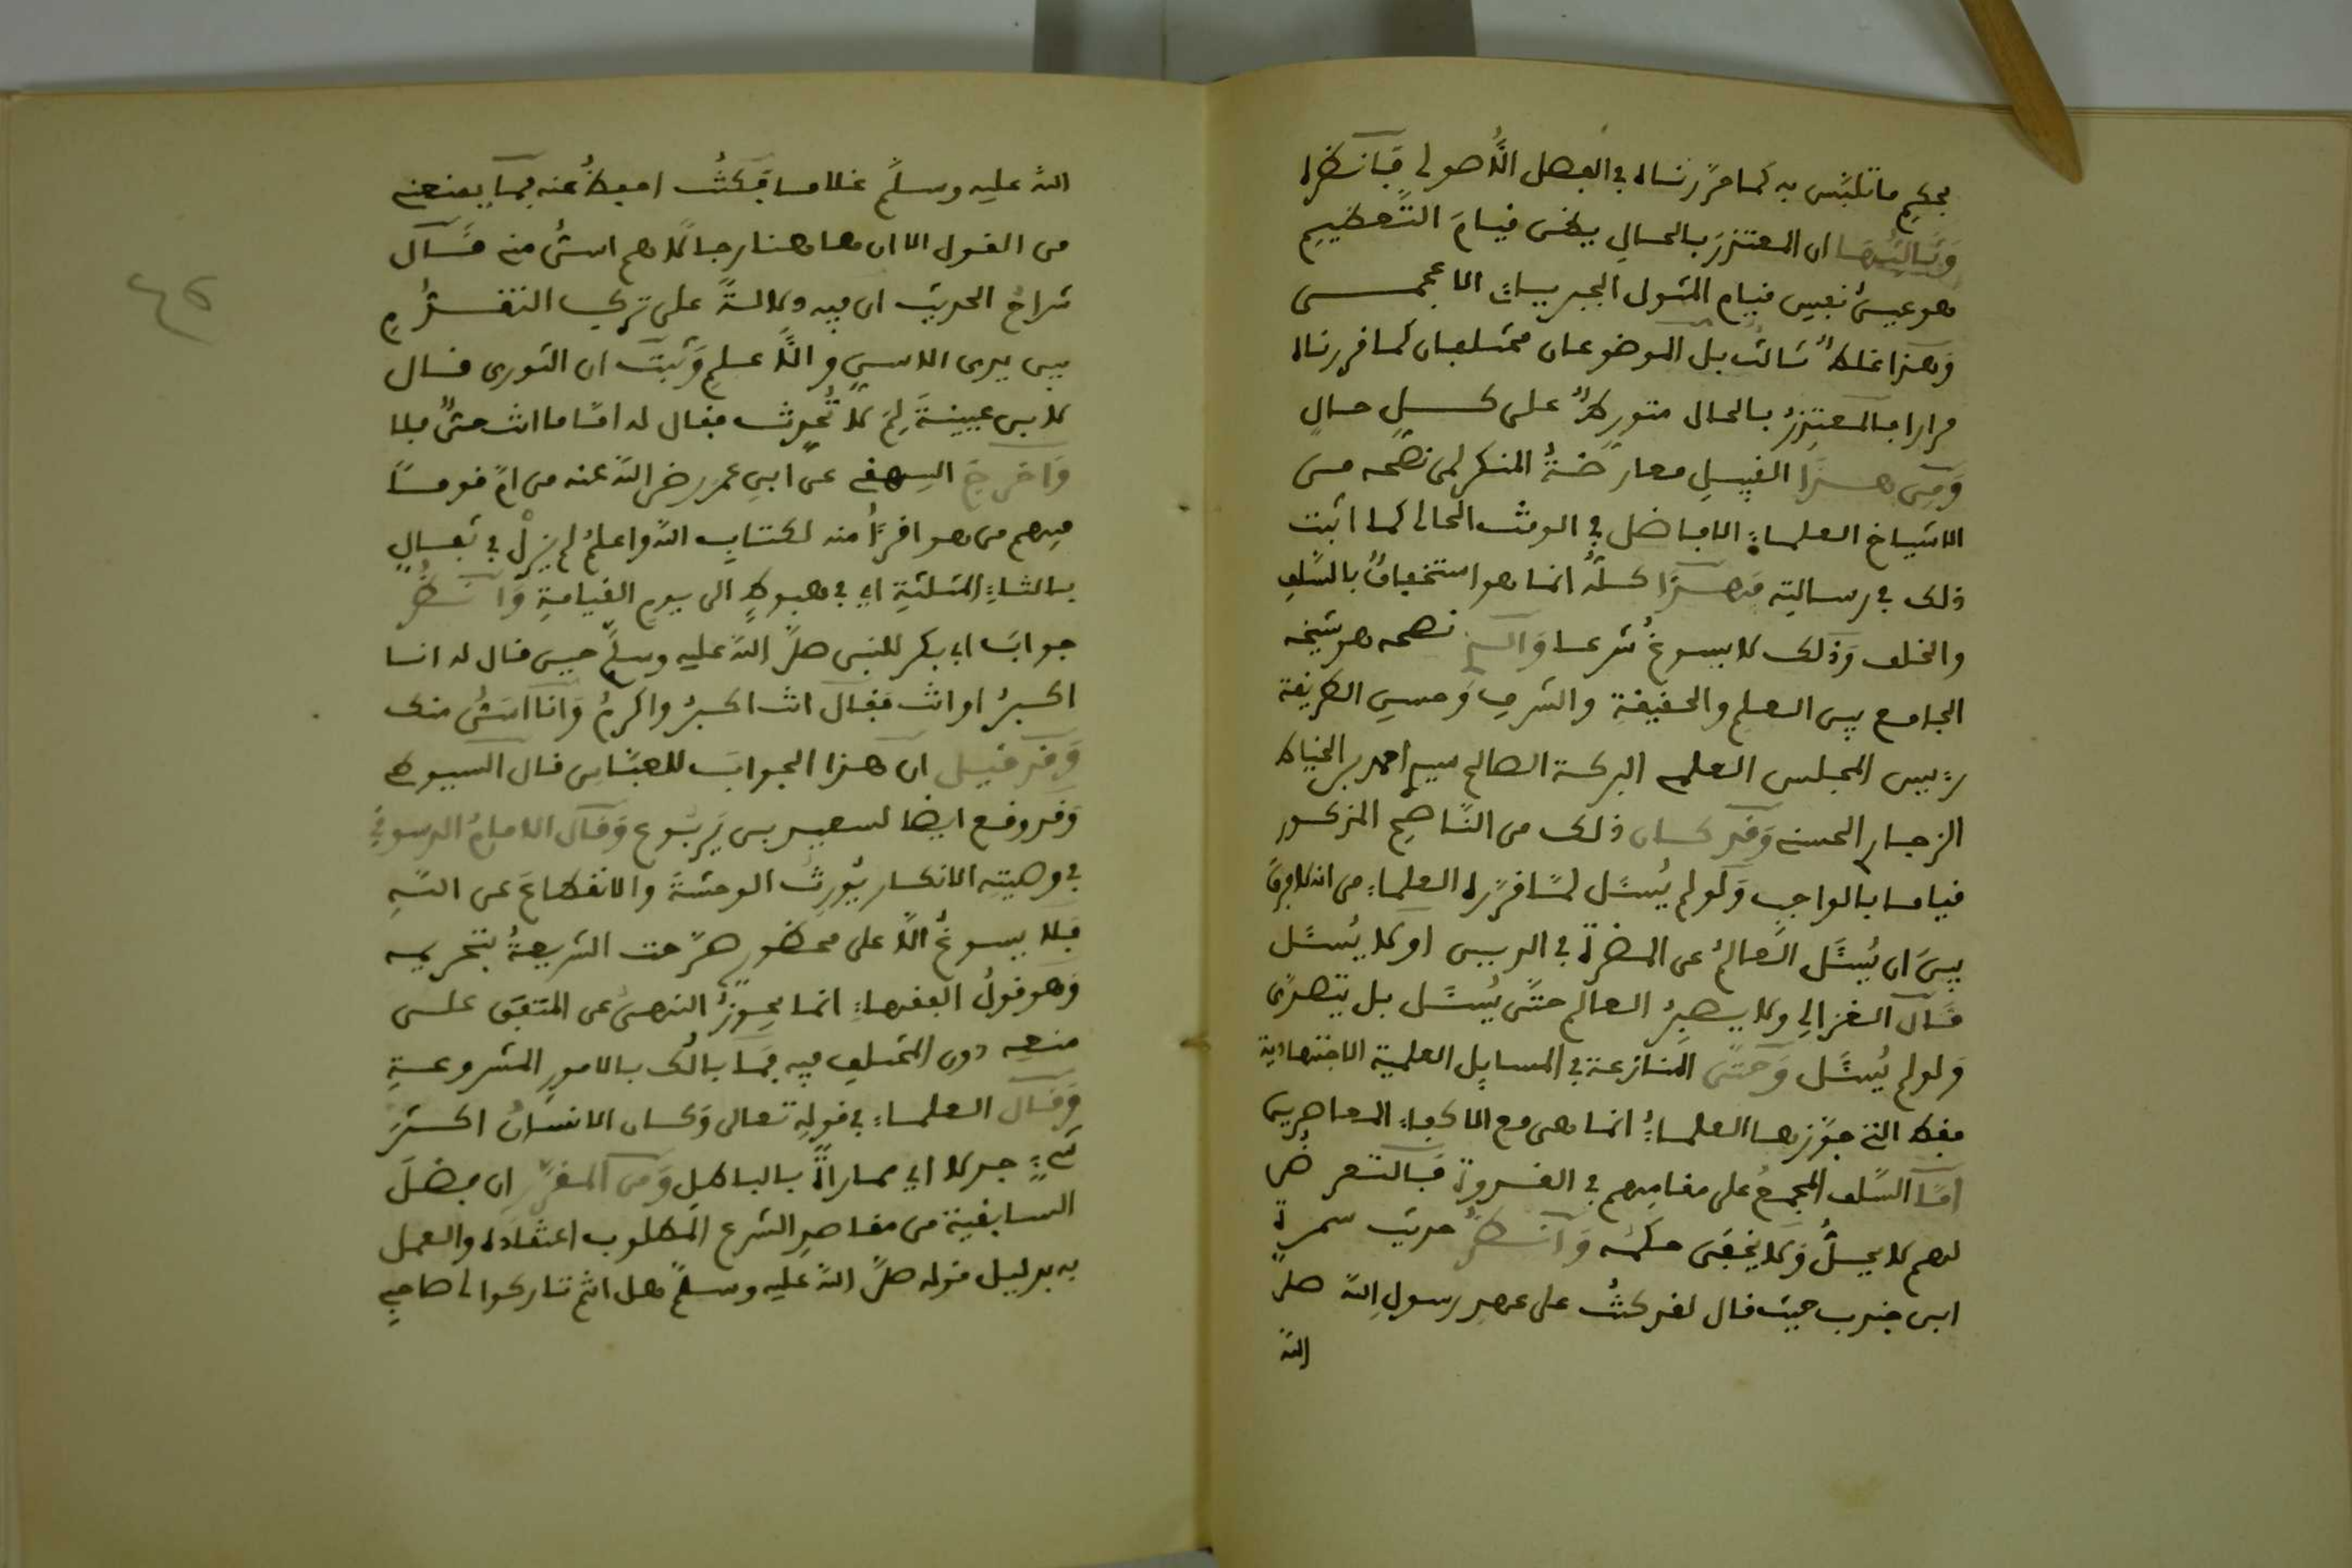 بحكم ما تلبّس به كما قرّرناه في الفصل الأصولي فانظره
وَثالثها ان المهتزّ بالحال يظن قيامَ التّعظيم
هو عينُ نفس قيام المثول الجبريات الاعجمى
وَهذا غلطٌ ثالث بل الموضوعان مختلفان كما قررناه
مرارا فالمهتزُّ بالحال متورطٌ على كل حالٍ
وَمن هذا القبيل معارضةُ المنكر لمن نصحه من
الاشياخ العلماء الافاضل في الوقت الحالى كما اثبت
ذلك في رسالته فهذا كلّه انما هو استخفافٌ بالسّلف
والخلف وَذلك لا يسوغُ شرعا نصحه هو شيخه
الجامع بين العلم والحقيقة والشرف وَحسن الطريقة
رئيس المجلس العلمى البركة الصالح سيدي احمد بن الخياط
الزجارى الحسنى وَقد كان ذلك من النّاصح المذكور
قياما بالواجب وَلو لم يُسئل لمّا قرّره العلماء من انه لا فرق
بينَ ان يُسئل العالمُ عن المضرة في الدين او لا يُسئل
قال الغزالي ولا يصبرُ العالم حتّى يُسئل بل يتصدّى
وَلو لم يُسئل وَحتّى المنازعة في المسايل العلمية الاجتهادية
فقط التى جوّزها العلماءُ انما هى مع الاكفاء المعاصرين
امّا السّلف المجمعُ على مقامهم في القدوة فالتعرضُ
لهم لا يحلُّ وَلا يخفى حكمه وَانظرْ حديث سمرة
ابن جندب حيث قال لقد كنتُ على عهد رسولِ الله صلّى
الله
الله عليه وسلّم غلاما فكنتُ احفظُ عنه فما يمنعنى
من القول الا ان هاهنا رجالا هم اسنُّ منى قال
شراحُ الحديث ان فيه دلالةً على تركِ التقدُّمِ
بين يدى الاسنِّ والأعلم وَثبت ان الثورى قال
لابن عيينةَ لِمَ لا تُحدّث فقال له امّا ما انت حىٌّ فلا
وَاخرجَ البيهقى عن ابن عمر رضى الله عنه من امَّ قوماً
فيهم من هو اقرأُ منه لكتابِ الله واعلمُ لم يزلْ في ثفال
بالثاءِ المثلثةِ اي في هبوطٍ الى يوم القيامةِ وَانظرْ
جوابَ ابي بكر للنبى صلّى الله عليه وسلّم حين قال له انا
اكبرُ او انت فقال انت اكبرُ واكرمُ وَانا اسنُّ منك
وَقد قيل ان هذا الجوابَ للعبّاس قال السيوطى
وَقد وقع ايضا لسعيد بن يَربُوع وَقال الامامُ الدسوقي
في وصيته الانكار يُورثُ الوحشةَ والانقطاعَ عن اللّهِ
فلا يسوغُ الّا على محظورٍ صرّحت الشريعةُ بتحريمه
وَهو قولُ الفقهاء انما يجوزُ النهىُ عن المتفق على
منعه دون المختلف فيه فما بالُك بالامور المشروعةِ
وَقال العلماءُ في قوله تعالى وَكان الانسانُ اكثرَ
شىءٍ جدلا اي مماراةً بالباطل وَمن المقرّرِ ان فضلَ
السابقية من مقاصد الشرع المطلوب اعتقاده والعمل
به بدليل قوله صلّى الله عليه وسلّم هل انتم تاركوا لى صاحبي